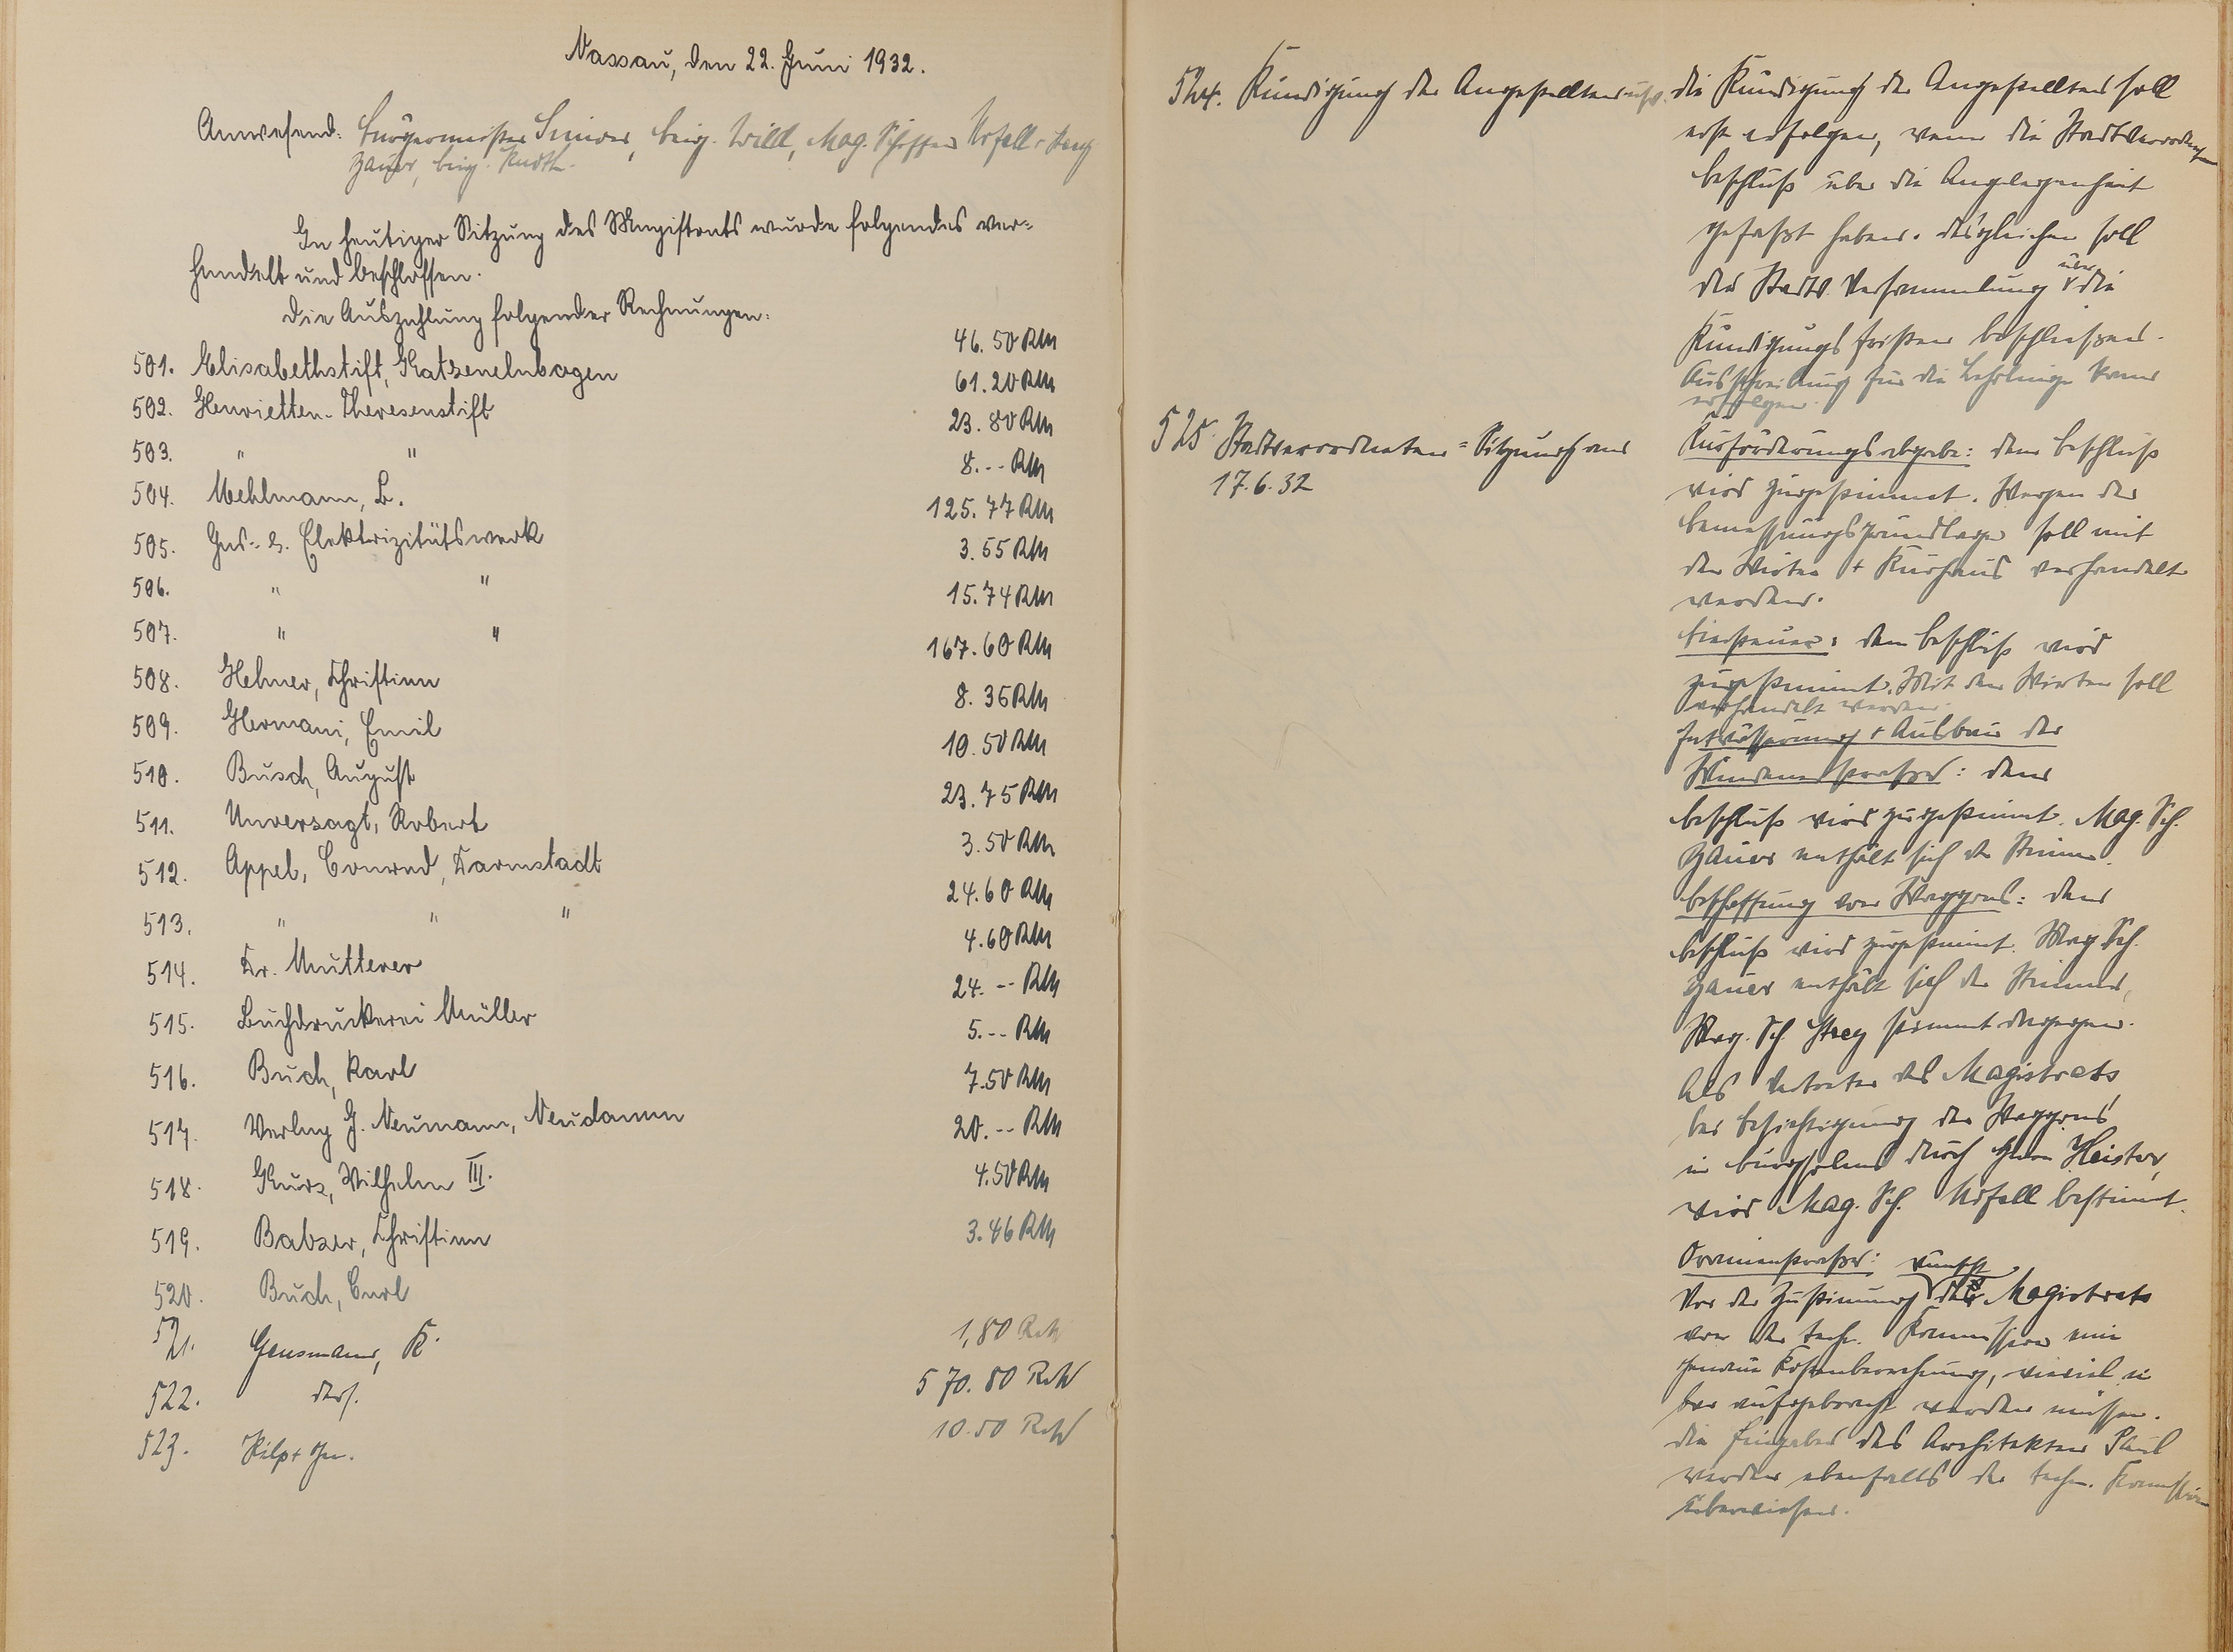 Nassau, den 22. Juni 1932.
Anwesend: Bürgermeister, Beig. Wild, Mag. Schöffen Urfell, Strey
Hauer, Beig.
In heutiger Sitzung des Magistrats wurde folgendes ver-
handelt und beschlossen.
Die Auszahlung folgender Rechnungen:
501. Elisabethstift, Katzenelnbogen 46.50 RM
502. Henrietten-Theresenstift 61.20 RM
503. " " 23.80 RM
504. Mehlmann, L. 8.-- RM
505. Gas- u. Elektrizitätswerk 125.77 RM
506. " " 3.55 RM
507. " " 15.74 RM
508. Hehner, Christian 167.60 RM
509. Hermani, Emil 8.35 RM
510. Busch, August 10.50 RM
511. Unversagt, Robert 23.75 RM
512. Appel, Conrad, Darmstadt 3.50 RM
513. " " " 24.60 RM
514. Dr. Mutterer 4.60 RM
515. Buchdruckerei Müller 24.-- RM
516. Buch, Karl 5.-- RM
517. Verlag J. Neumann, Neudamm 7.50 RM
518. Kurz, Wilhelm III. 20.-- RM
519. Balzer, Christian 4.50 RM
520. Buch, Carl 3.46 RM
521. Gensmann, K. 1,80 RM
522. ders. 570.80 RM
523. Hilp + 10.50 RM
524. Kündigung der Angestellten usw.
Die Kündigung der Angestellten soll
erst erfolgen, wenn die Stadtverordneten
Beschluß über die Angelegenheit
gefaßt haben. Desgleichen soll
die Stadtv. Versammlung über die
Kündigungsfristen beschließen.
Ausschreibung für die Lehrlinge kann
erfolgen.
525 Stadtverordneten-Sitzung am
17.6.32
Kurförderungsabgabe: Dem Beschluß
wird zugestimmt. Wegen der
Bemessungsgrundlage soll mit
den Wirten + Kurhaus verhandelt
werden.
Biersteuer: Dem Beschluß wird
zugestimmt. Mit den Wirten soll
verhandelt werden.
Entwässerung + Ausbau der
Windenerstraße: Dem
Beschluß wird zugestimmt. Mag. Sch.
Hauer enthält sich der Stimme.
Beschaffung von Waggons: Dem
Beschluß wird zugestimmt. Mag. Sch.
Hauer enthält sich der Stimme,
Mag. Sch. Strey stimmt dagegen.
Als Vertreter des Magistrats
bei Besichtigung der Waggons
in Burgsolms durch Herrn Heister,
wird Mag. Sch. Urfell bestimmt.
Oranienstraße:
Vor der Zustimmung wünscht der Magistrat
von der techn. Kommission eine
genaue Kostenberechnung, wieviel in
bar aufgebracht werden müssen.
Die Eingaben des Architekten Paul
werden ebenfalls der techn. Kommission
überwiesen.